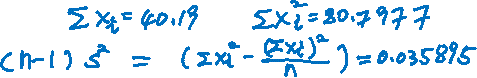 Σxᵢ = 40.19 Σxᵢ² = 80.7977
(n-1) s² = (Σxᵢ² - (Σxᵢ)²/n) = 0.035895